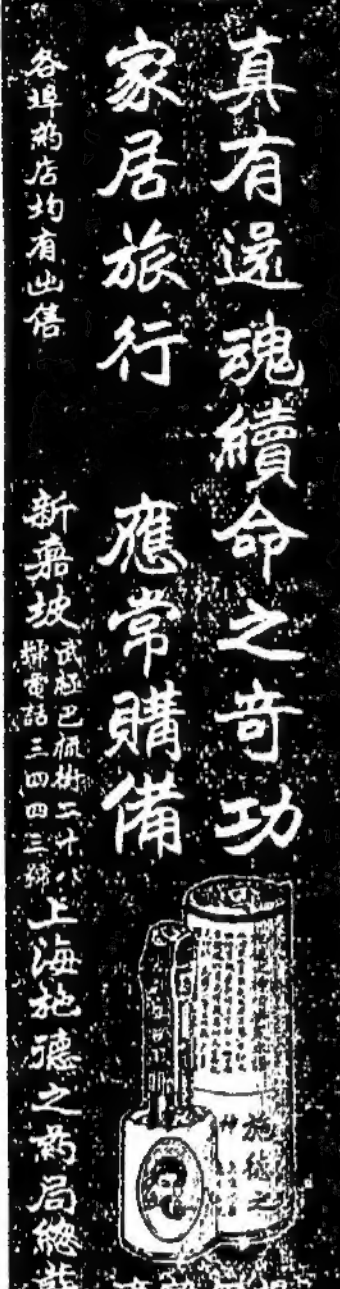 真有還魂續命之奇功
家居旅行 應常購備
各埠葯店均有出售
新嘉坡
武廵巴梹樹二十八
號電話三四四三號
上海施德之葯局總
施德之